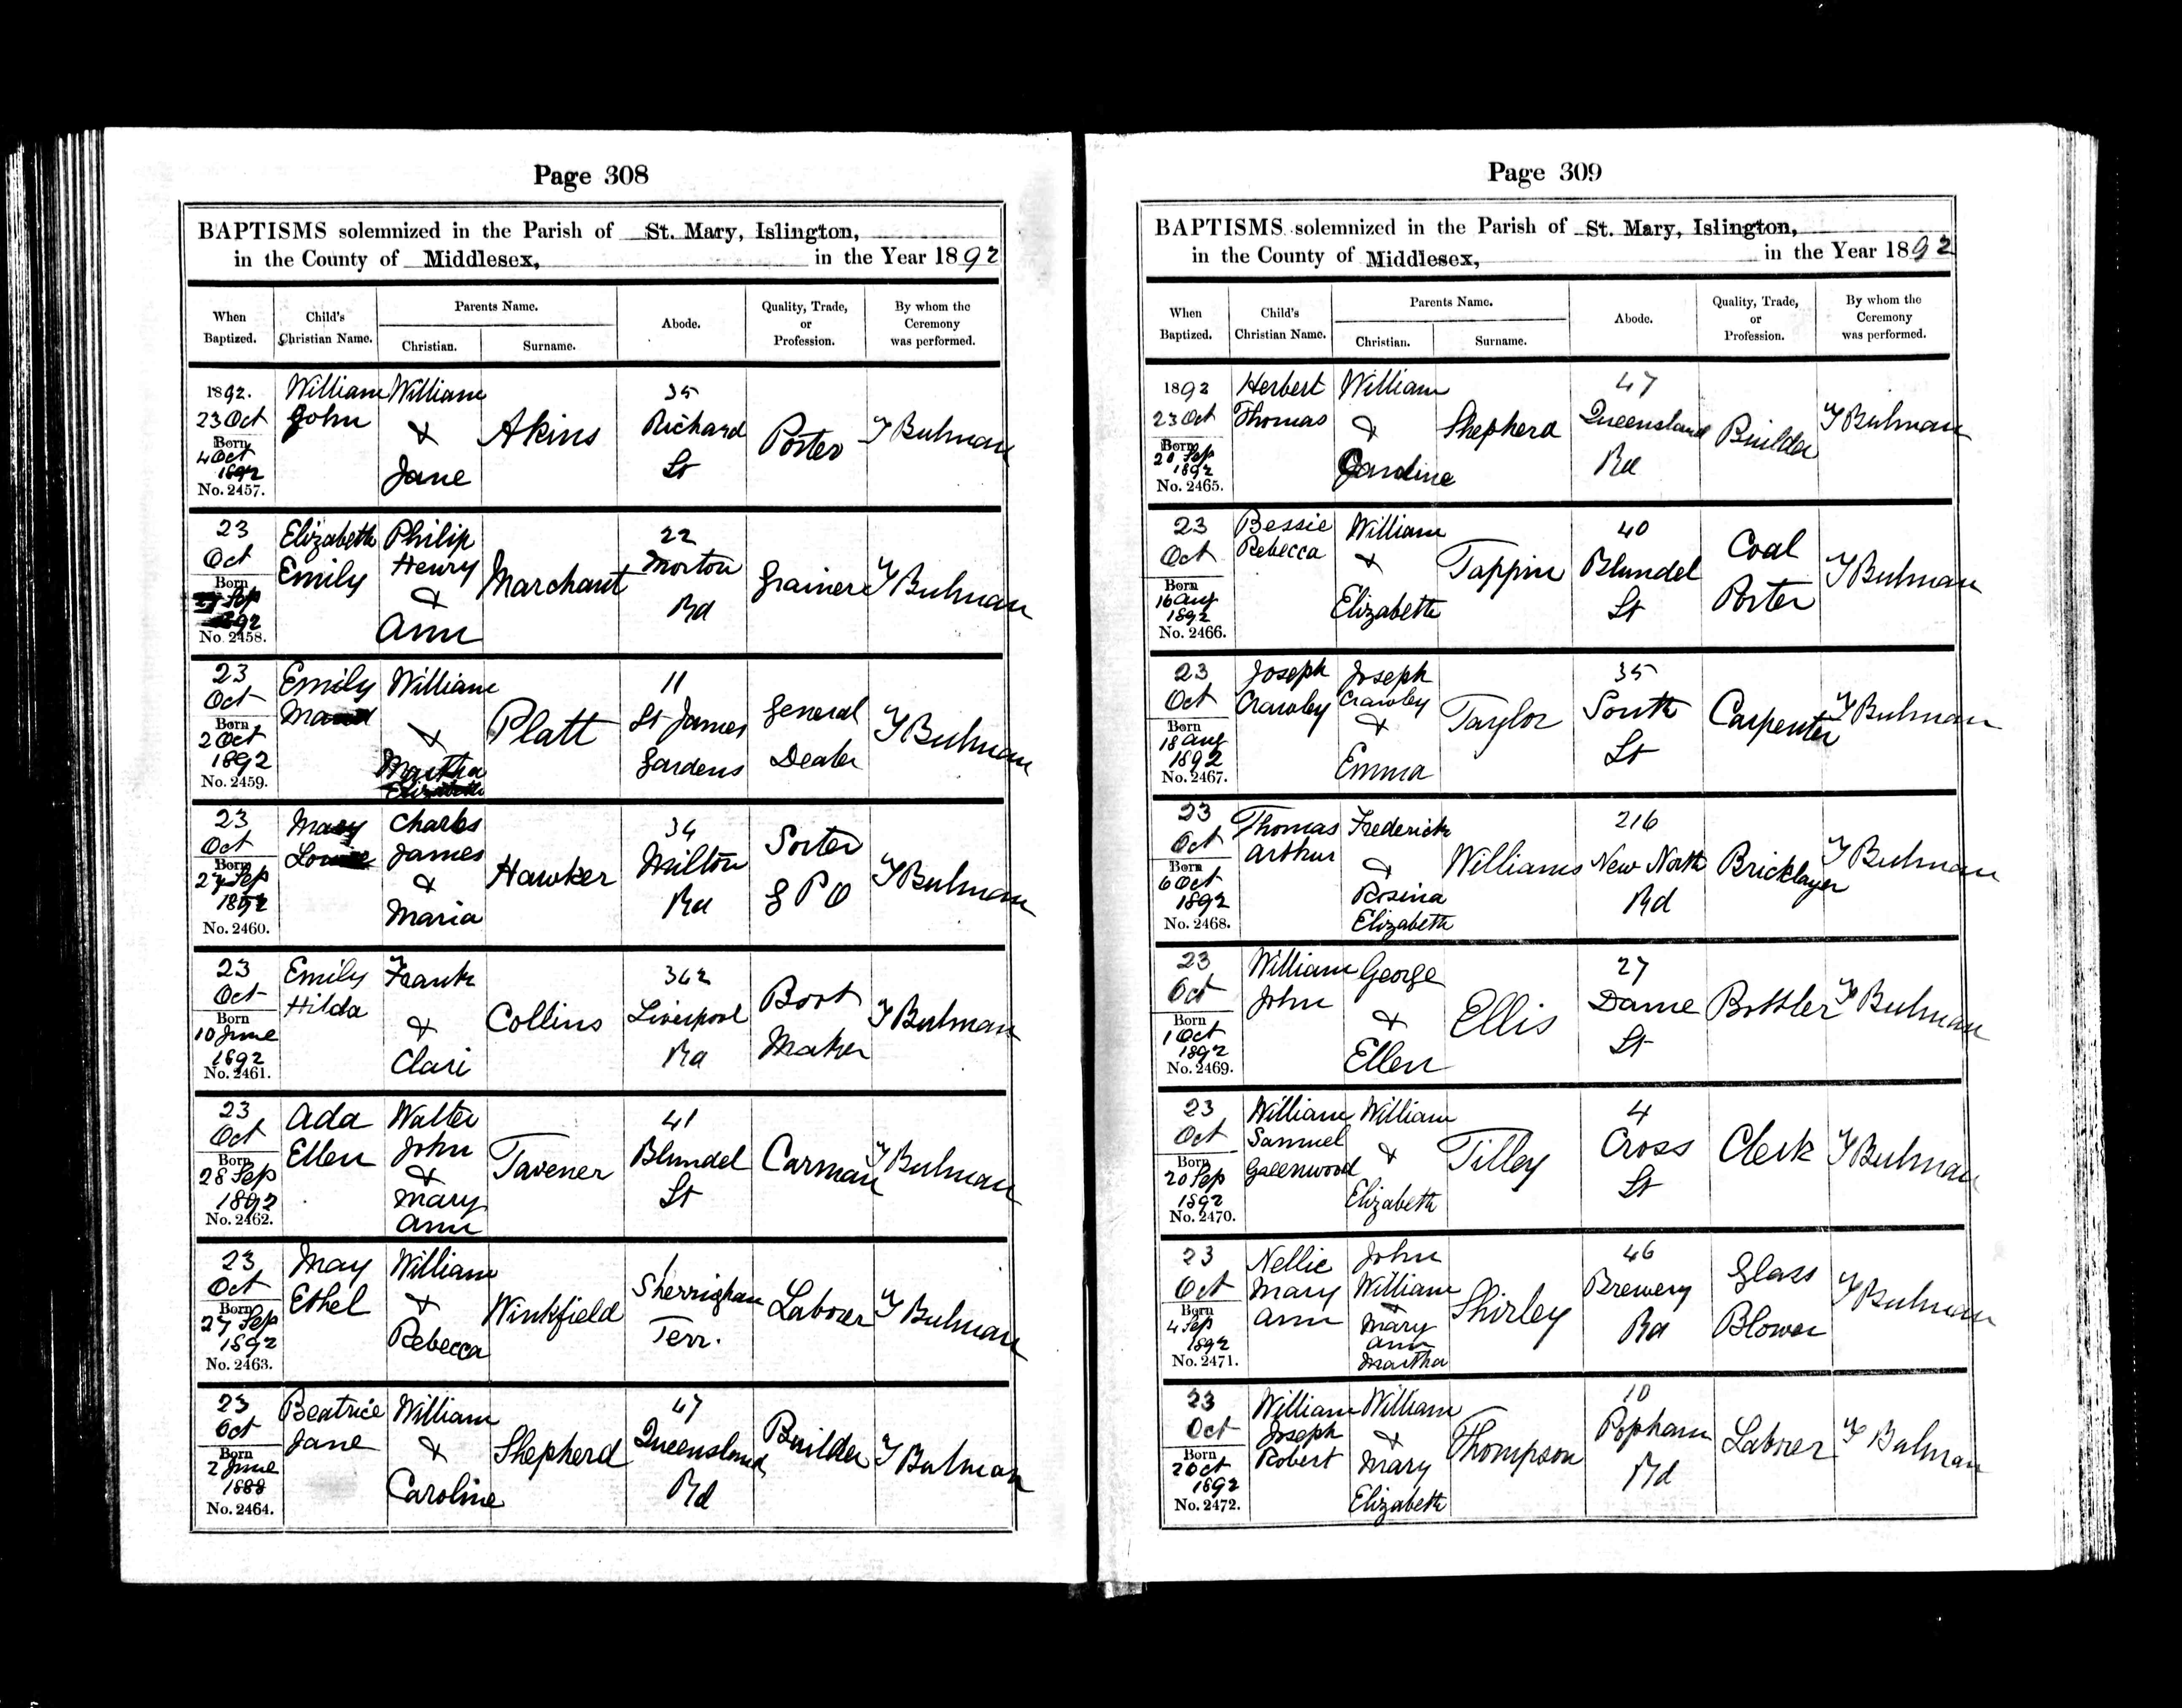 Page 308
BAPTISMS solemnized in the Parish of St. Mary, Islington,
in the County of Middlesex, in the Year 1892
When Baptized.
Child's Christian Name.
Parents Name.
Christian.
Surname.
Abode.
Quality, Trade, or Profession.
By whom the Ceremony was performed.
1892.
23 Oct
Born
4 Oct
1892
No. 2457.
William
John
William
&
Jane
Akins
35
Richard
St
Porter
Bulman
23
Oct
Born
Sep
1892
No. 2458.
Elizabeth
Emily
Philip
Henry
&
Ann
Marchant
22
Morton
Rd
Grainer
Bulman
23
Oct
Born
2 Oct
1892
No. 2459.
Emily
William
&
Martha
Elizabeth
Platt
11
St James
Gardens
General
Dealer
Bulman
23
Oct
Born
27 Sep
1892
No. 2460.
Mary
Louise
Charles
James
&
Maria
Hawker
34
Milton
Rd
Sorter
G P O
Bulman
23
Oct
Born
10 June
1892
No. 2461.
Emily
Hilda
Frank
&
Clari
Collins
362
Liverpool
Rd
Boot
Maker
Bulman
23
Oct
Born
28 Sep
1892
No. 2462.
Ada
Ellen
Walter
John
&
Mary
Ann
Tavener
41
Blundel
St
Carman
Bulman
23
Oct
Born
27 Sep
1892
No. 2463.
May
Ethel
William
&
Rebecca
Winkfield
1
Sherringham
Terr.
Laborer
Bulman
23
Oct
Born
2 June
1888
No. 2464.
Beatrice
Jane
William
&
Caroline
Shepherd
47
Queensland
Rd
Builder
Bulman
Page 309
BAPTISMS solemnized in the Parish of St. Mary, Islington,
in the County of Middlesex, in the Year 1892
When Baptized.
Child's Christian Name.
Parents Name.
Christian.
Surname.
Abode.
Quality, Trade, or Profession.
By whom the Ceremony was performed.
1892
23 Oct
Born
Sep
1892
No. 2465.
Herbert
Thomas
William
&
Caroline
Shepherd
47
Queensland
Rd
Builder
Bulman
23
Oct
Born
16 Aug
1892
No. 2466.
Bessie
Rebecca
William
&
Elizabeth
Tappin
40
Blundel
St
Coal
Porter
Bulman
23
Oct
Born
18 Aug
1892
No. 2467.
Joseph
Crawley
Joseph
Crawley
&
Emma
Taylor
35
South
St
Carpenter
Bulman
23
Oct
Born
6 Oct
1892
No. 2468.
Thomas
Arthur
Frederick
&
Rosina
Elizabeth
Williams
216
New North
Rd
Bricklayer
Bulman
23
Oct
Born
1 Oct
1892
No. 2469.
William
John
George
&
Ellen
Ellis
27
Dame
St
Bottler
Bulman
23
Oct
Born
20 Sep
1892
No. 2470.
William
Samuel
Greenwood
William
&
Elizabeth
Tilley
4
Cross
St
Clerk
Bulman
23
Oct
Born
4 Sep
1892
No. 2471.
Nellie
Mary
Ann
John
William
&
Mary
Ann
Martha
Shirley
46
Brewery
Rd
Glass
Blower
Bulman
23
Oct
Born
2 Oct
1892
No. 2472.
William
Joseph
Robert
William
&
Mary
Elizabeth
Thompson
10
Popham
Rd
Laborer
Bulman